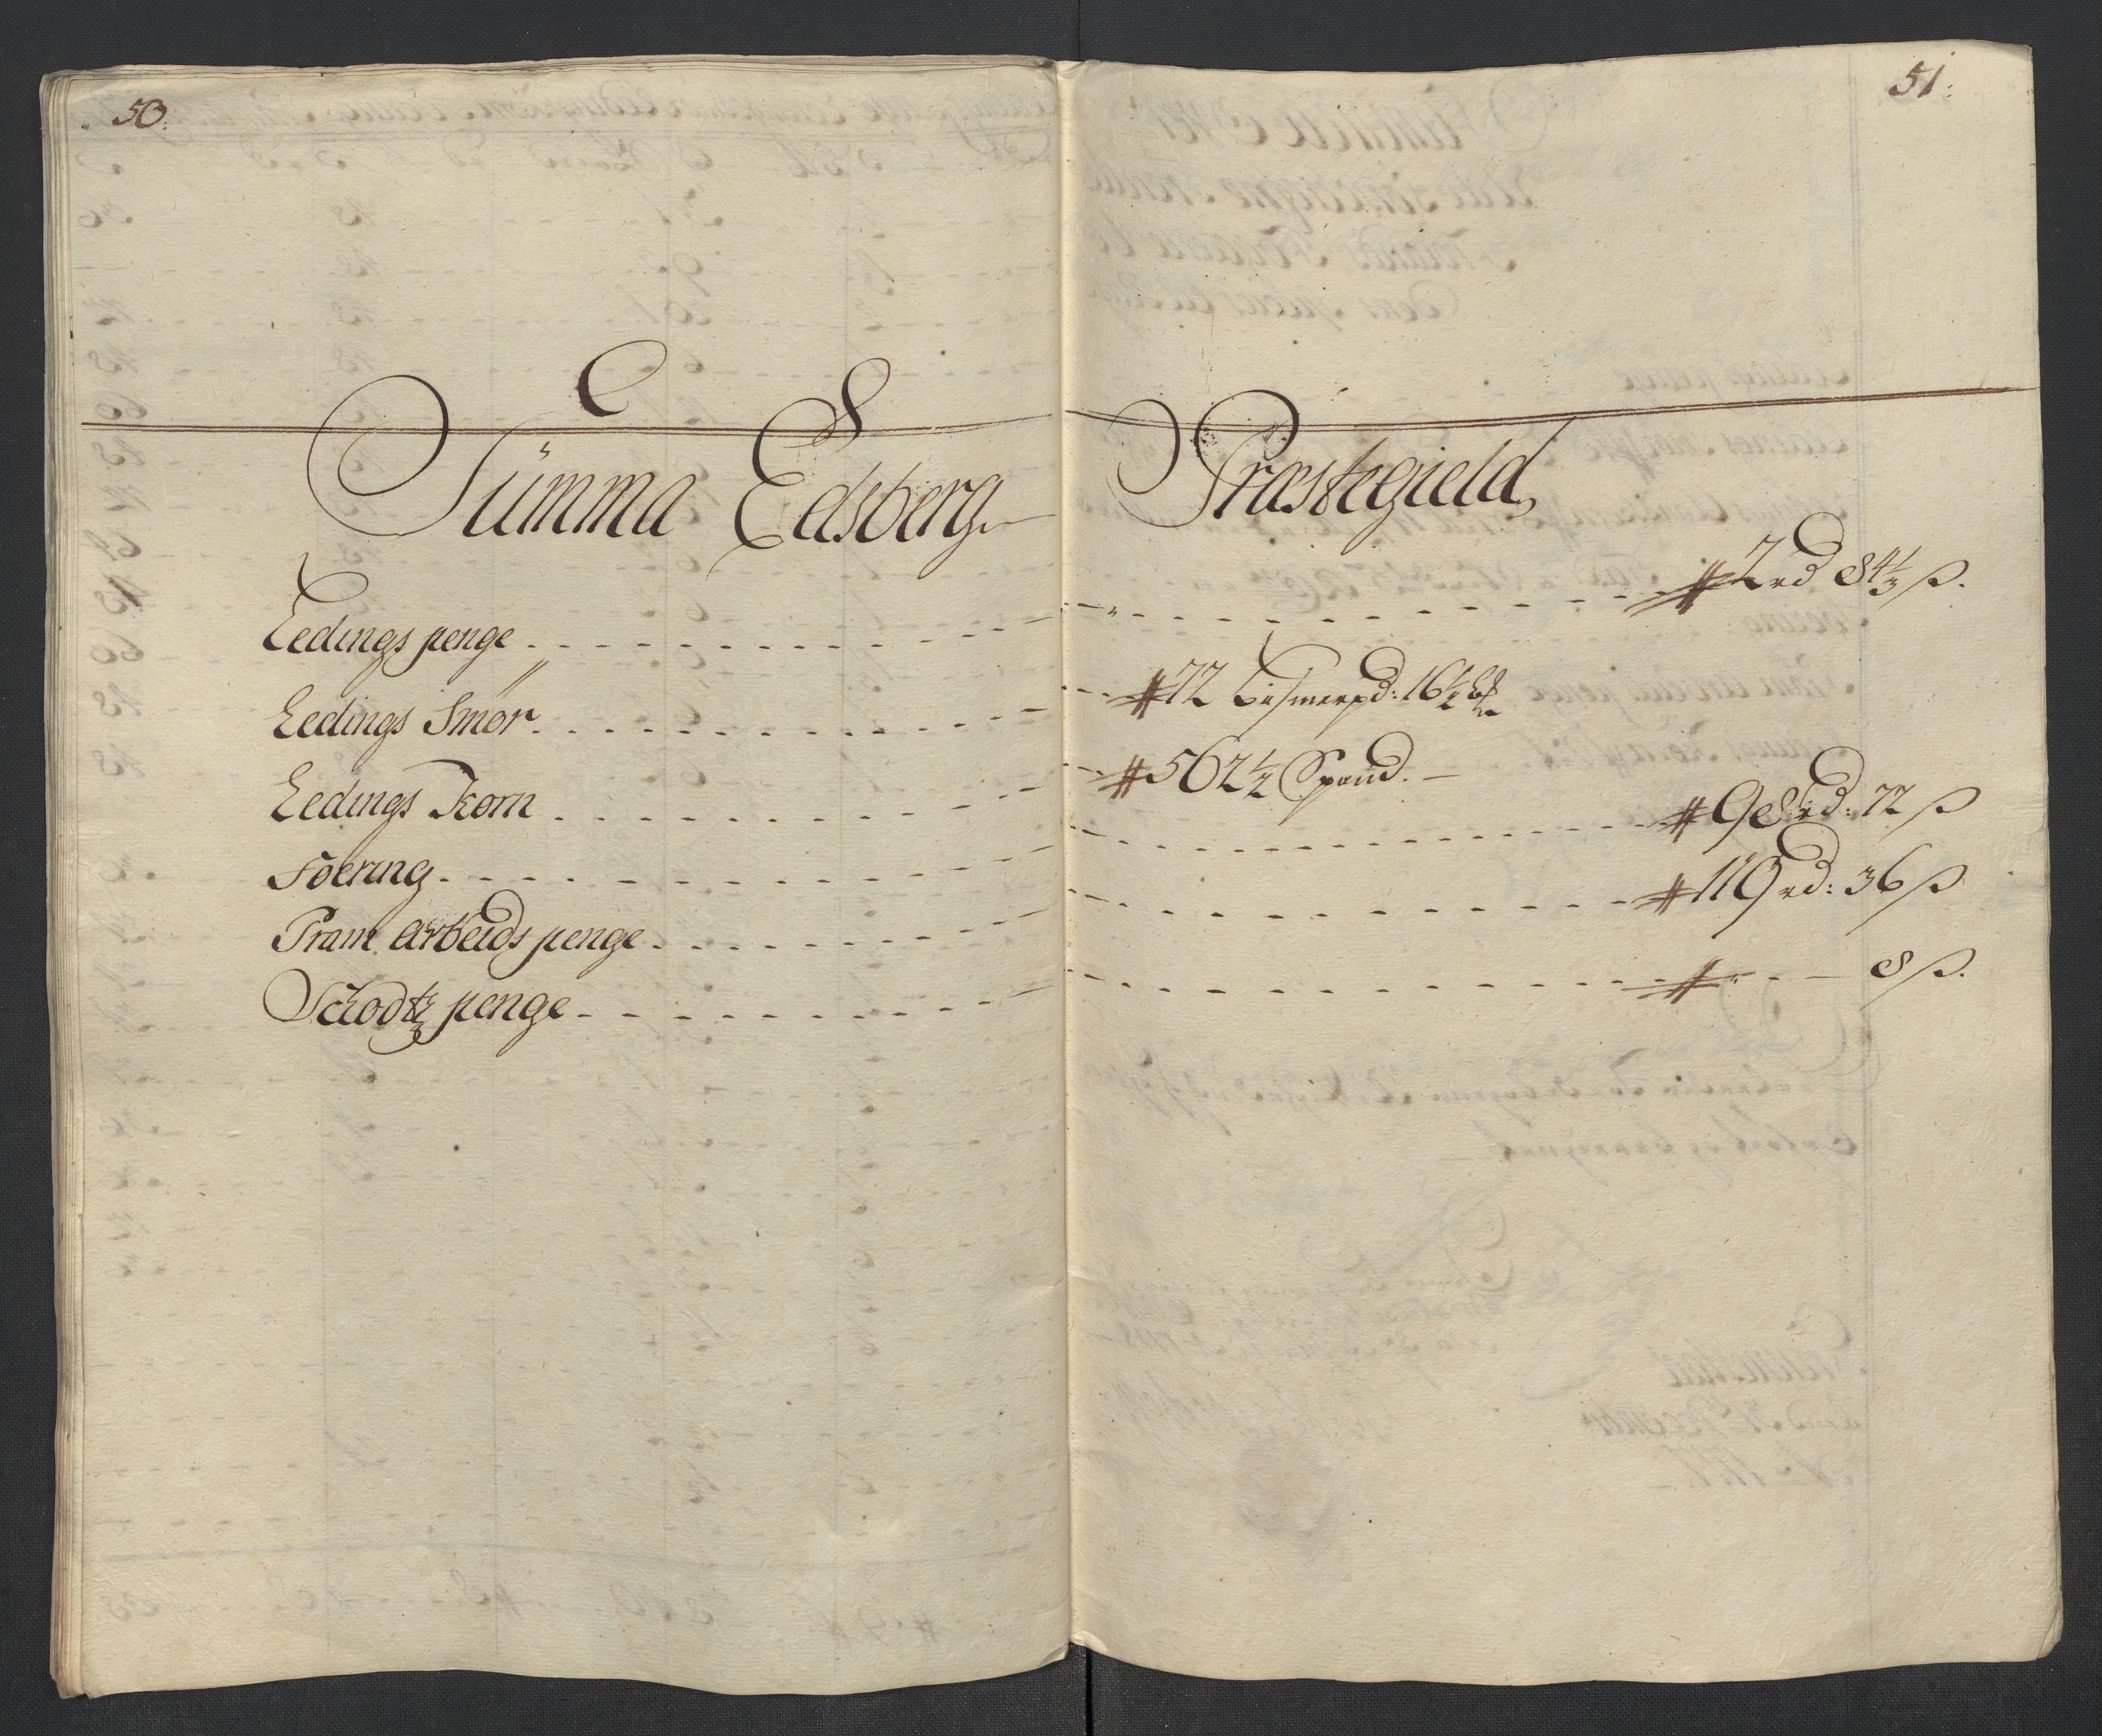 50:
51:
Summa Edsberg Præstegield,
Ledings penge # 2 rd 84⅓ ß.
Ledings Smør # 72 bismerpd: 16½
Ledings Korn # 562½ Spand.
Foering # 98 rd: 72 ß
Pram Arbeids penge # 119 rd: 36 ß
Schodtz penge # 8 ß.